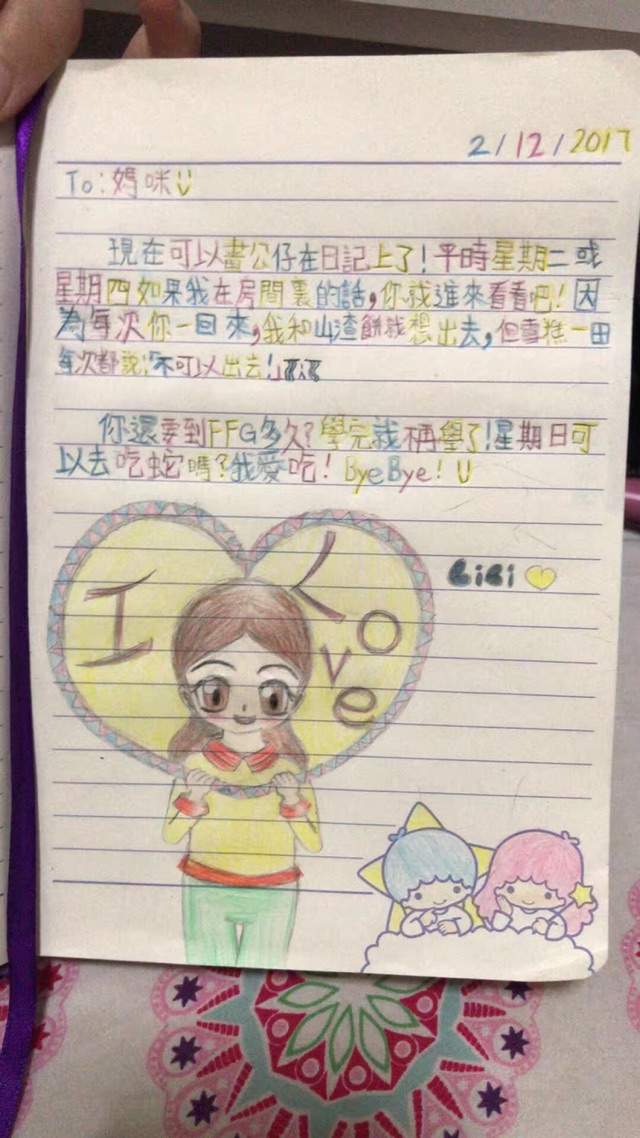 2/12/2017
To:媽咪
現在可以畫公仔在日記上了!平時星期二或
星期四如果我在房間裏的話,你就進來看看吧!因
為每次你一回來,我和山渣餅就想出去,但雪糕一田
每次都說:「不可以出去!」
你還要到FFG多久?學完我再學了!星期日可
以去吃蛇嗎?我愛吃! ByeBye!
BiBi
I Love